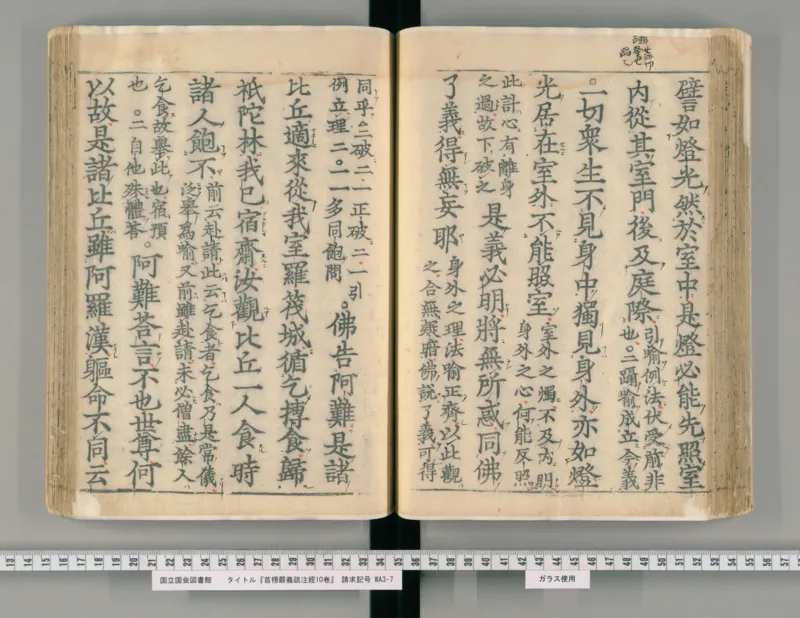 譬如燈光然於室中是燈必能先照室
内從其室門後及庭際
引喻例法伏受前非
也。二躡喻成立令義
一切衆生不見身中獨見身外亦如燈
光居在室外不能照室
室外之燭不及内明
身外之心何能反照
此計心有離身
之過故下破之
是義必明將無所惑同佛
了義得無妄耶
身外之理法喻正齊以此觀
之合無疑暗佛說了義可得
同乎二破二一正破二一引
例立理二。一多同飽問
。佛告阿難是諸
比丘適來從我室羅筏城循乞摶食歸
祇陀林我已宿齋汝觀比丘一人食時
諸人飽不
前云赴請此云乞食者乞食乃是常儀
泛擧爲喻又前雖赴請未必僧盡餘人
乞食故擧此也宿預
也。二自他殊體答
。阿難答言不也世尊何
以故是諸比丘雖阿羅漢軀命不同云
国立国会図書館 タイトル『首楞嚴義疏注經10巻』 請求記号 WA3-7
ガラス使用